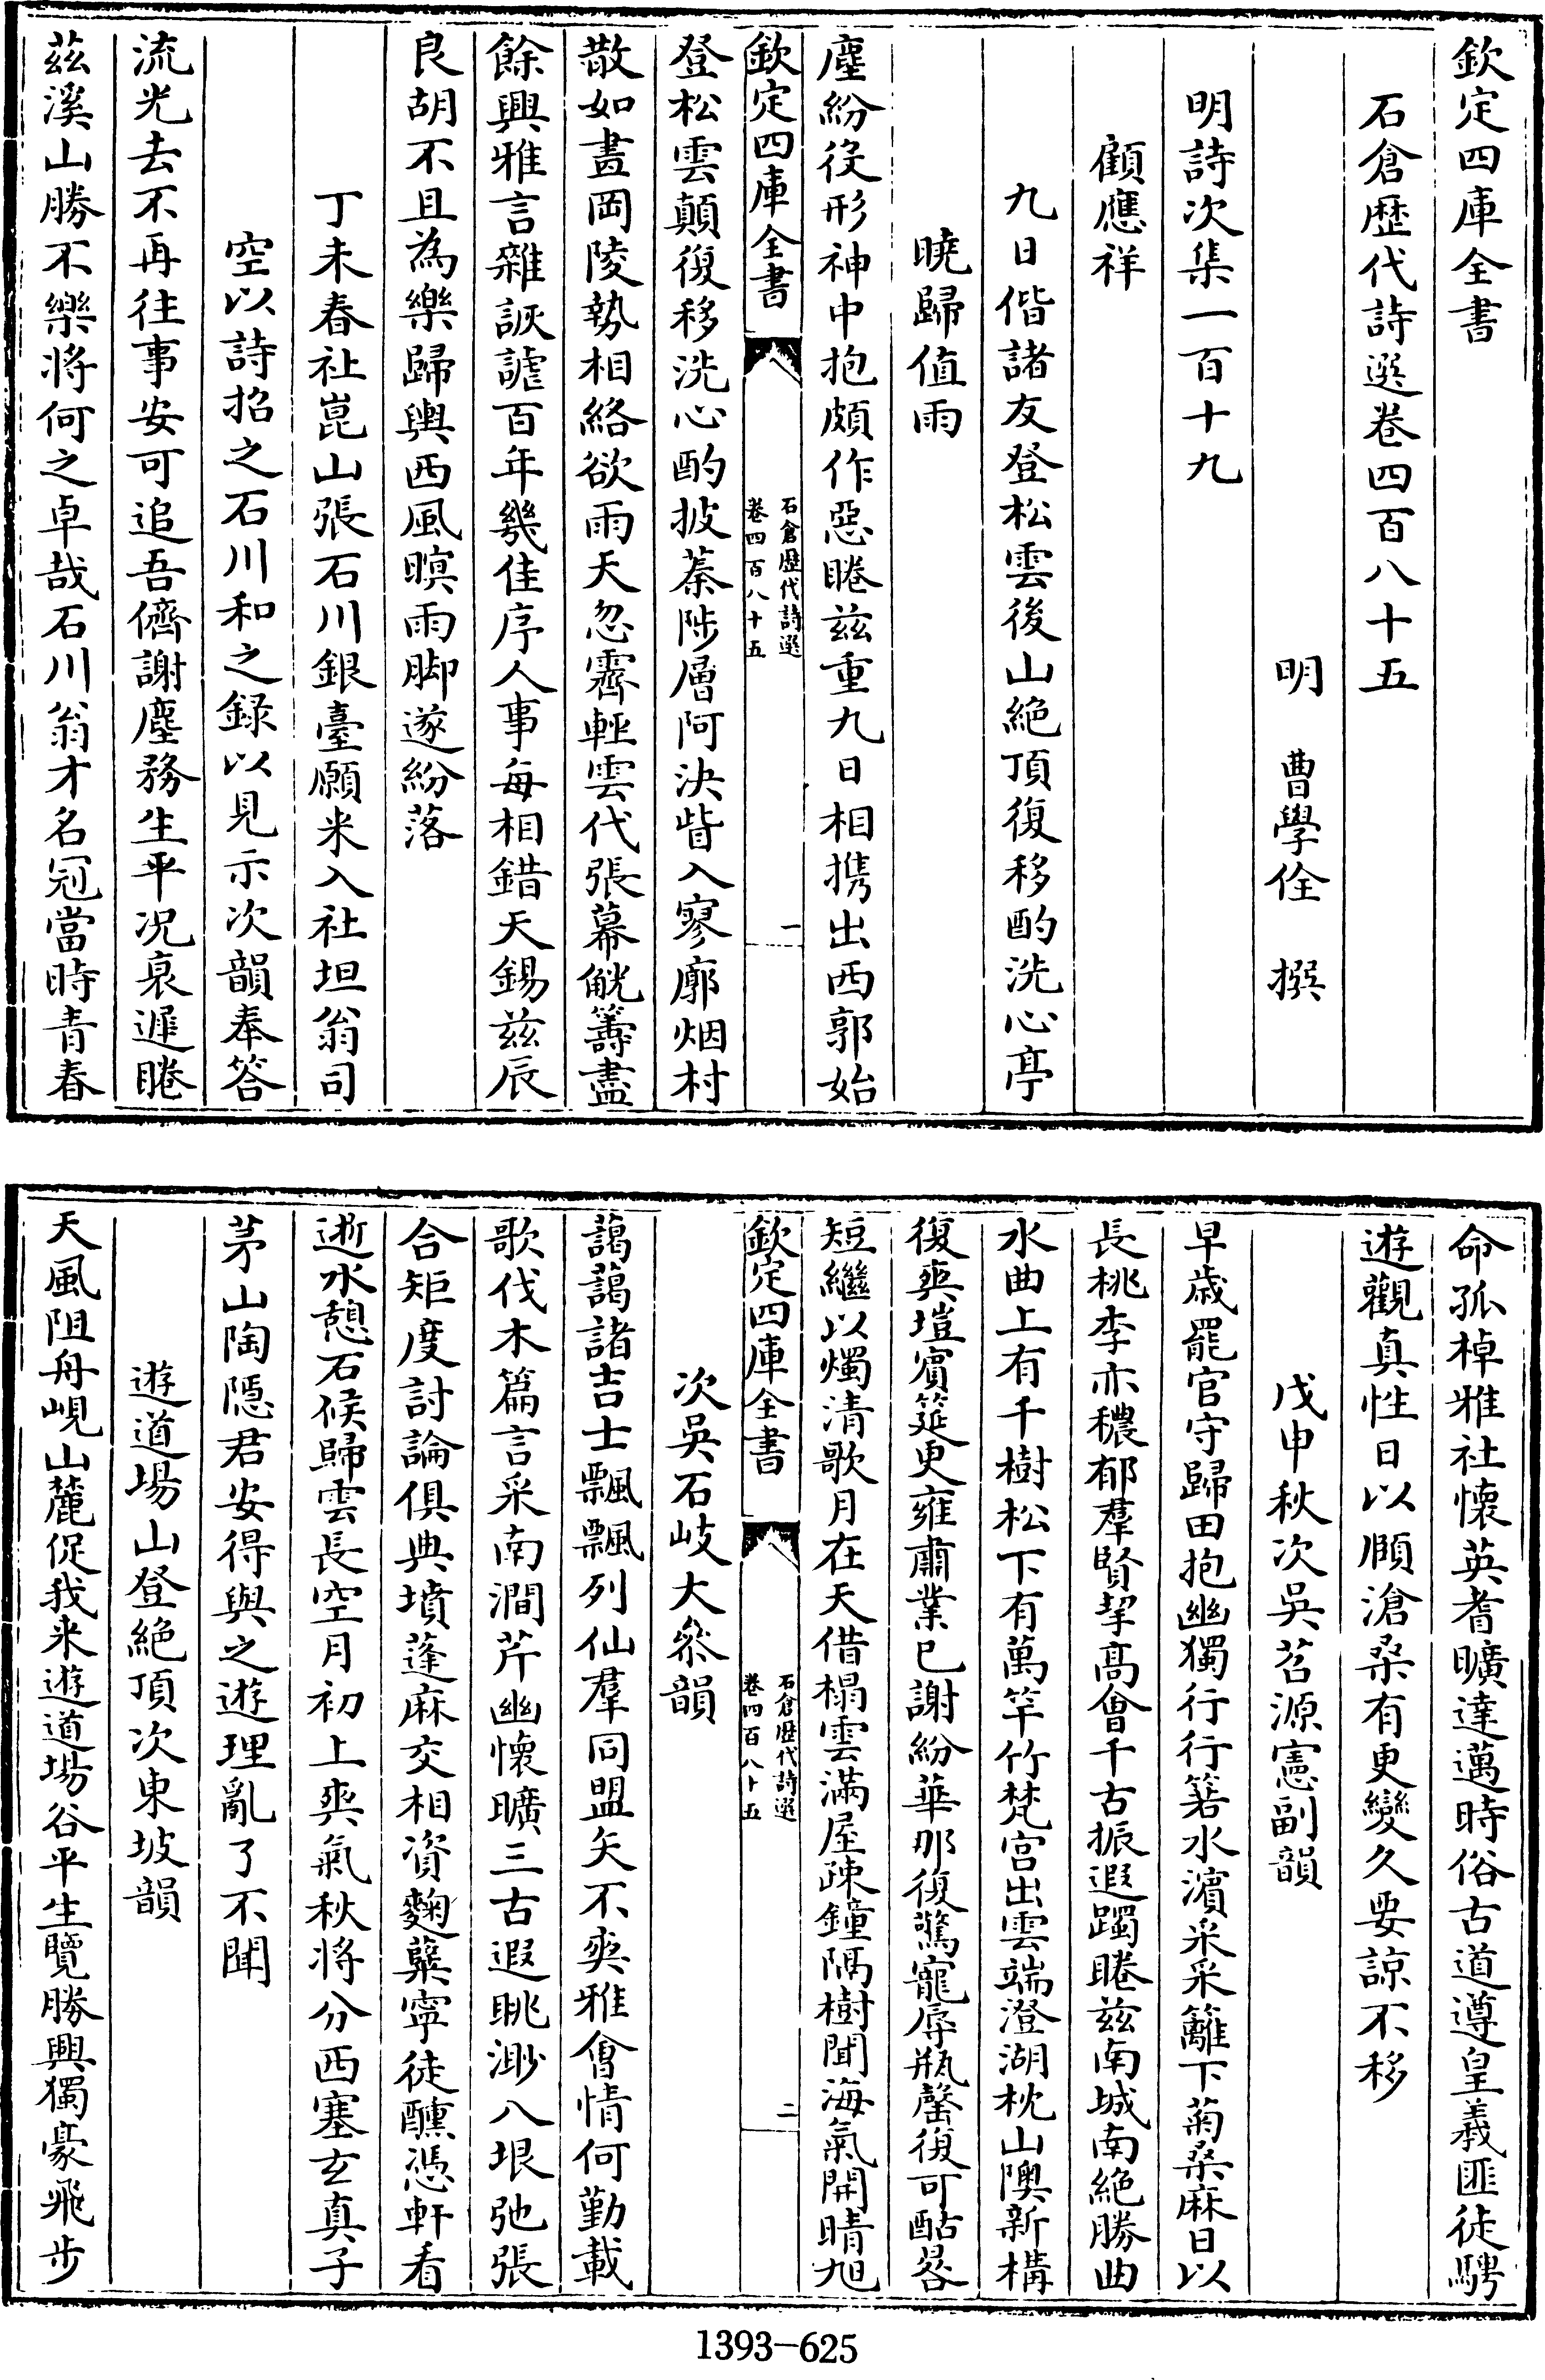 欽定四庫全書
石倉歴代詩選卷四百八十五
明　曹學佺　撰
明詩次集一百十九
顧應祥
九日偕諸友登松雲後山絶頂復移酌洗心亭
曉歸值雨
塵紛役形神中抱頗作惡睠兹重九日相携出西郭始
欽定四庫全書
石倉歴代詩選
卷四百八十五
一
登松雲顛復移洗心酌披蓁陟層阿決眥入寥廓烟村
散如畫岡陵勢相絡欲雨天忽霽輕雲代張幕觥籌盡
餘興雅言雜詼謔百年幾佳序人事每相錯天錫兹辰
良胡不且為樂歸輿西風暝雨脚遂紛落
丁未春社崑山張石川銀臺願来入社坦翁司
空以詩招之石川和之録以見示次韻奉答
流光去不再往事安可追吾儕謝塵務生平况衰遲睠
茲溪山勝不樂將何之卓哉石川翁才名冠當時青春
命孤棹雅社懷英耆曠達邁時俗古道遵皇羲匪徒騁
遊觀真性日以順滄桑有更變久要諒不移
戊申秋次吳茗源憲副韻
早歲罷官守歸田抱幽獨行行箬水濵采采籬下菊桑麻日以
長桃李亦穠郁羣賢挈髙會千古振遐躅睠兹南城南絶勝曲
水曲上有千樹松下有萬竿竹梵宫出雲端澄湖枕山隩新構
復爽塏賓筵更雍肅業已謝紛華那復驚寵辱瓶罄復可酤晷
短繼以燭清歌月在天借榻雲滿屋疎鐘隔樹聞海氣開晴旭
欽定四庫全書
石倉歴代詩選
卷四百八十五
二
次吳石岐大叅韻
藹藹諸吉士飄飄列仙羣同盟矢不爽雅會情何勤載
歌伐木篇言采南澗芹幽懷曠三古遐眺渺八垠弛張
合矩度討論俱典墳蓬麻交相資麴蘖寧徒醺憑軒看
逝水憩石候歸雲長空月初上爽氣秋将分西塞玄真子
茅山陶隱君安得與之遊理亂了不聞
遊道場山登絶頂次東坡韻
天風阻舟峴山麓促我来遊道場谷平生覽勝興獨豪飛步
1393-625